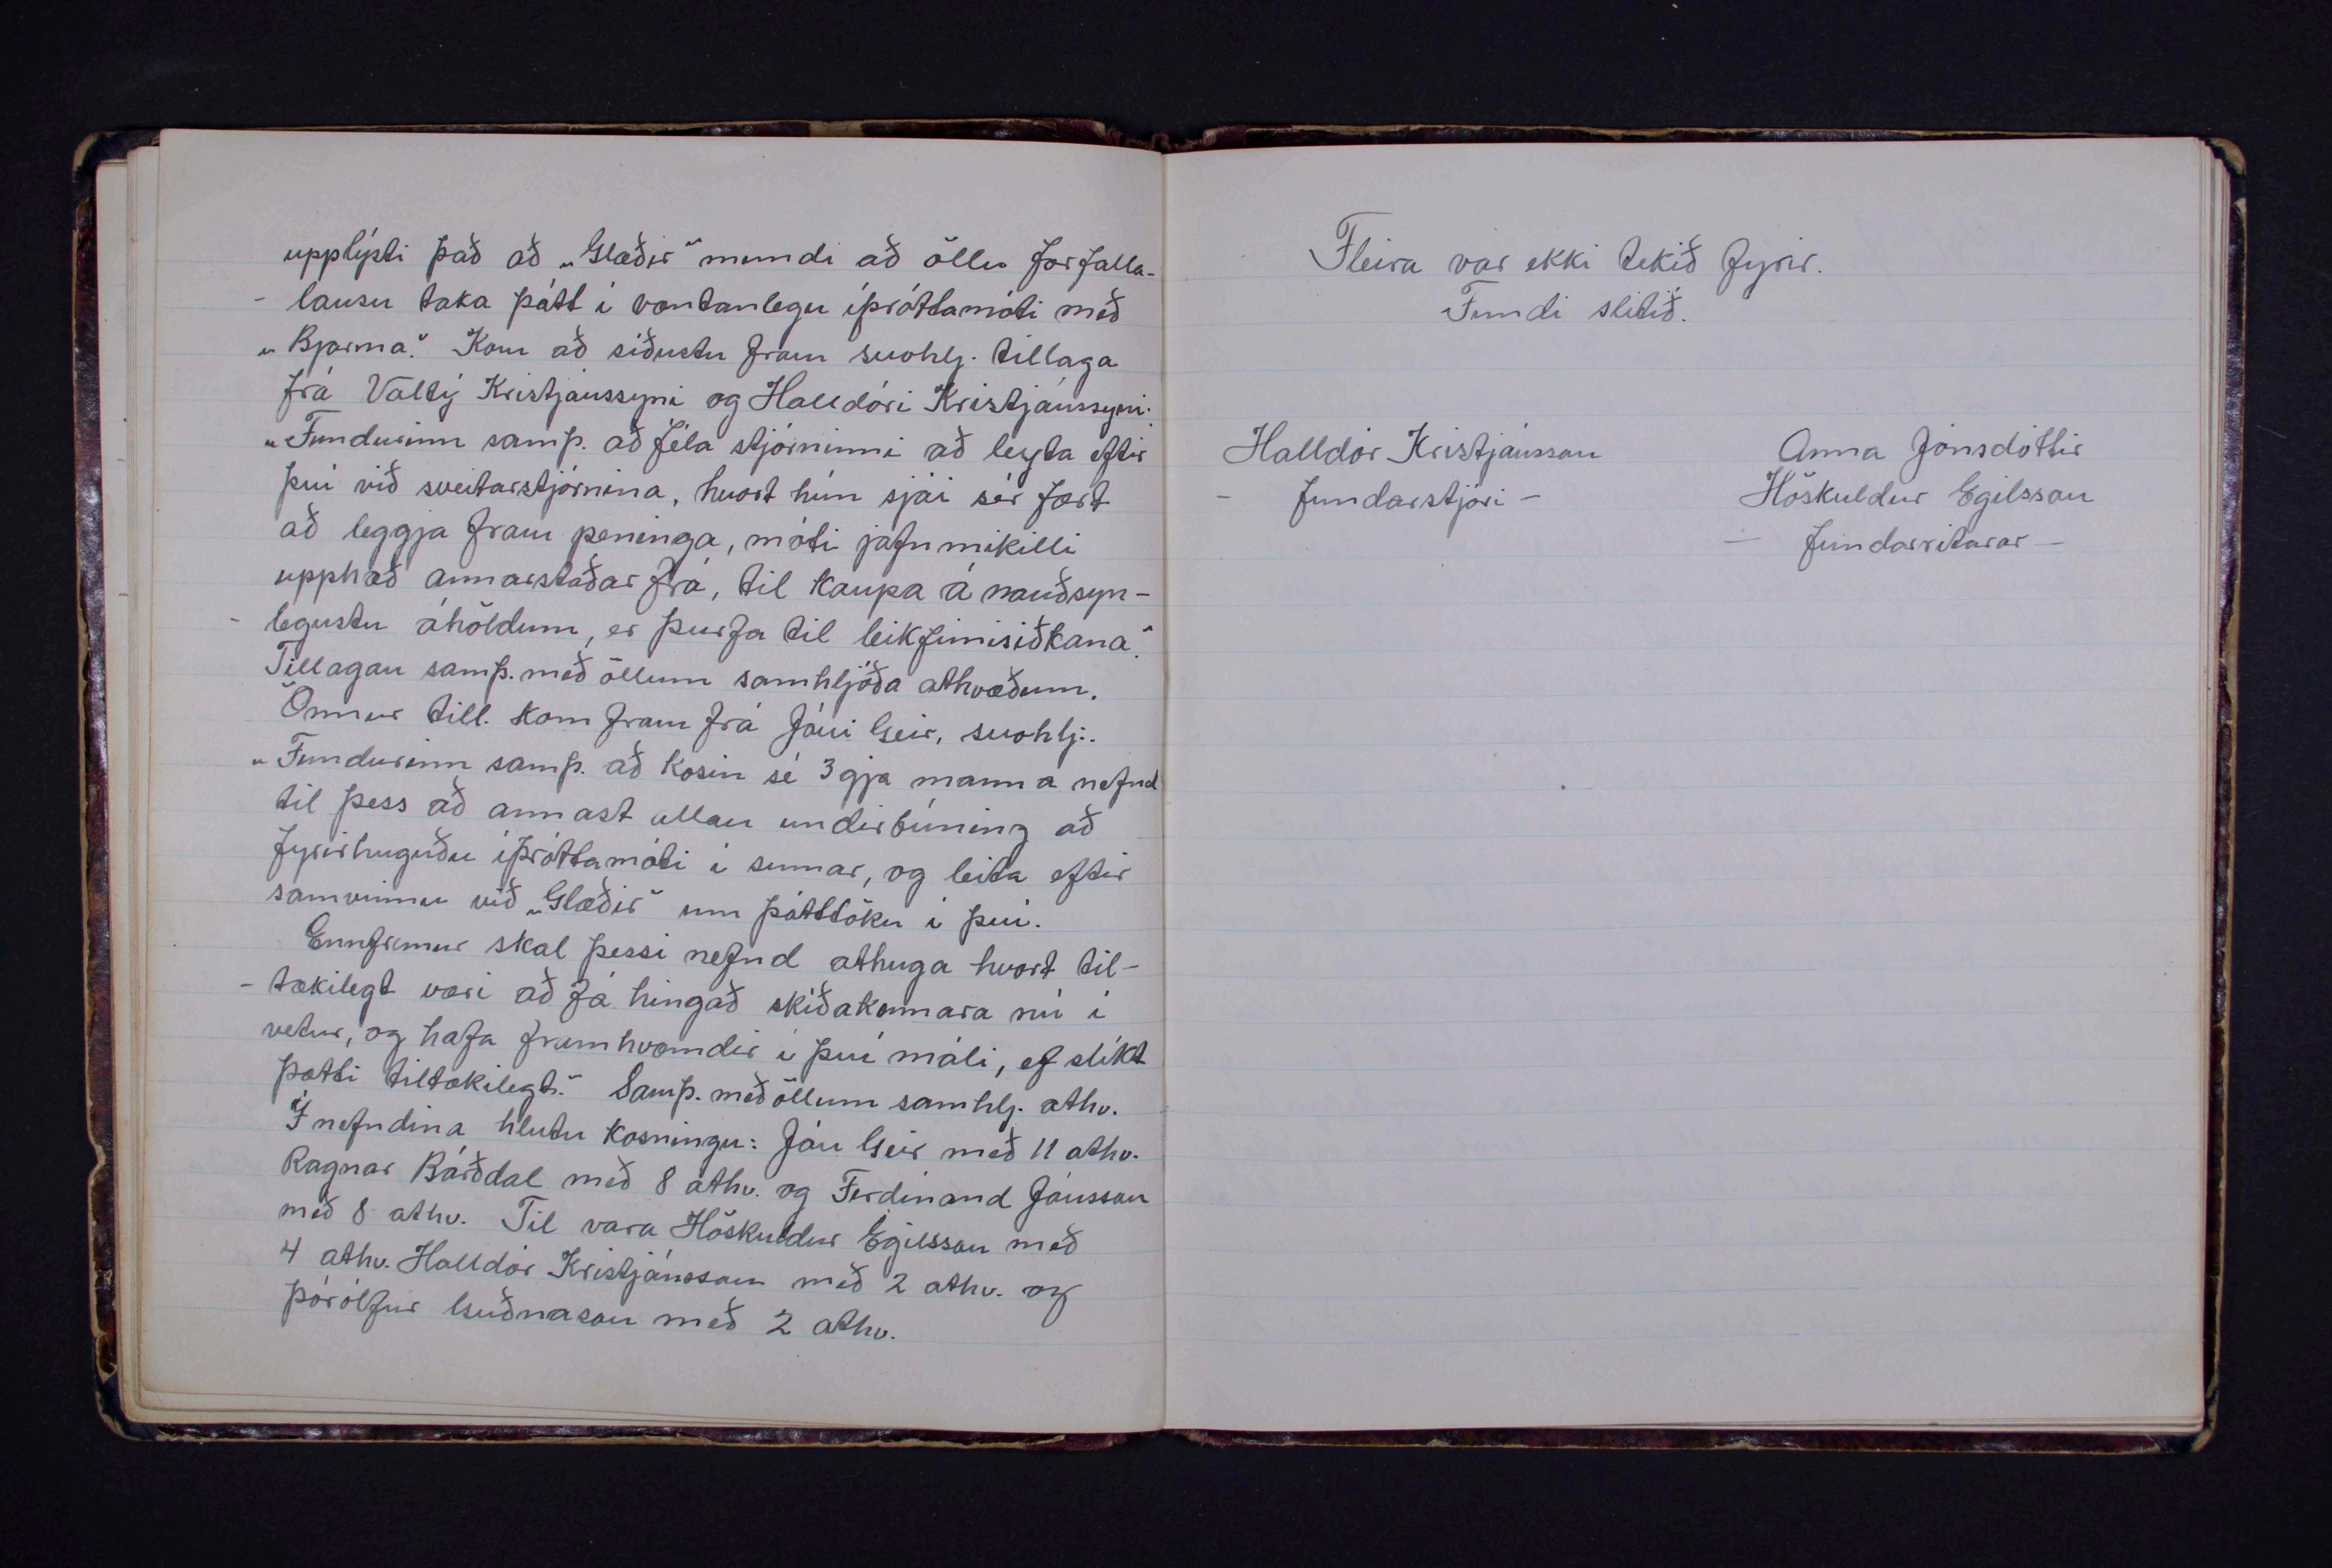 upplýsti það að „Glæðir" mundi að öllu forfalla-
- lausu taka þátt í væntanlegu íþróttamóti með
„Bjarma". Kom að síðustu fram svohlj. tillaga
frá Valtý Kristjánssyni og Halldóri Kristjánssyni:
„Fundurinn samþ. að fela stjórninni að leyta eftir
því við sveitarstjórnina, hvort hún sjái sér fært
að leggja fram peninga, móti jafnmikilli
upphæð annarstaðar frá, til kaupa á nauðsyn-
- legustu áhöldum, er þurfa til leikfimisiðkana."
Tillagan samþ. með öllum samhljóða athvæðum.
Önnur till. kom fram frá Jóni Geir, svohlj:.
„Fundurinn samþ. að kosin sé 3gja manna nefnd
til þess að annast allan undirbúning að
fyrirhuguðu íþróttamóti í sumar, og leita eftir
samvinnu við „Glæðir" um þátttöku í því.
Ennfremur skal þessi nefnd athuga hvort til-
- tækilegt væri að fá hingað skíðakennara nú í
vetur, og hafa framkvæmdir í því máli, ef slíkt
þætti tiltækilegt." Samþ. með öllum samhlj. athv.
Í nefndina hlutu kosningu: Jón Geir með 11 athv.
Ragnar Bárðdal með 8 athv. og Ferdinand Jónsson
með 8 athv. Til vara Höskuldur Egilsson með
4 athv. Halldór Kristjánsson með 2 athv. og
Þórólfur Guðnason með 2 athv.
Fleira var ekki tekið fyrir.
Fundi slitið.
Halldór Kristjánsson
- fundarstjóri -
Anna Jónsdóttir
Höskuldur Egilsson
- fundarritarar -